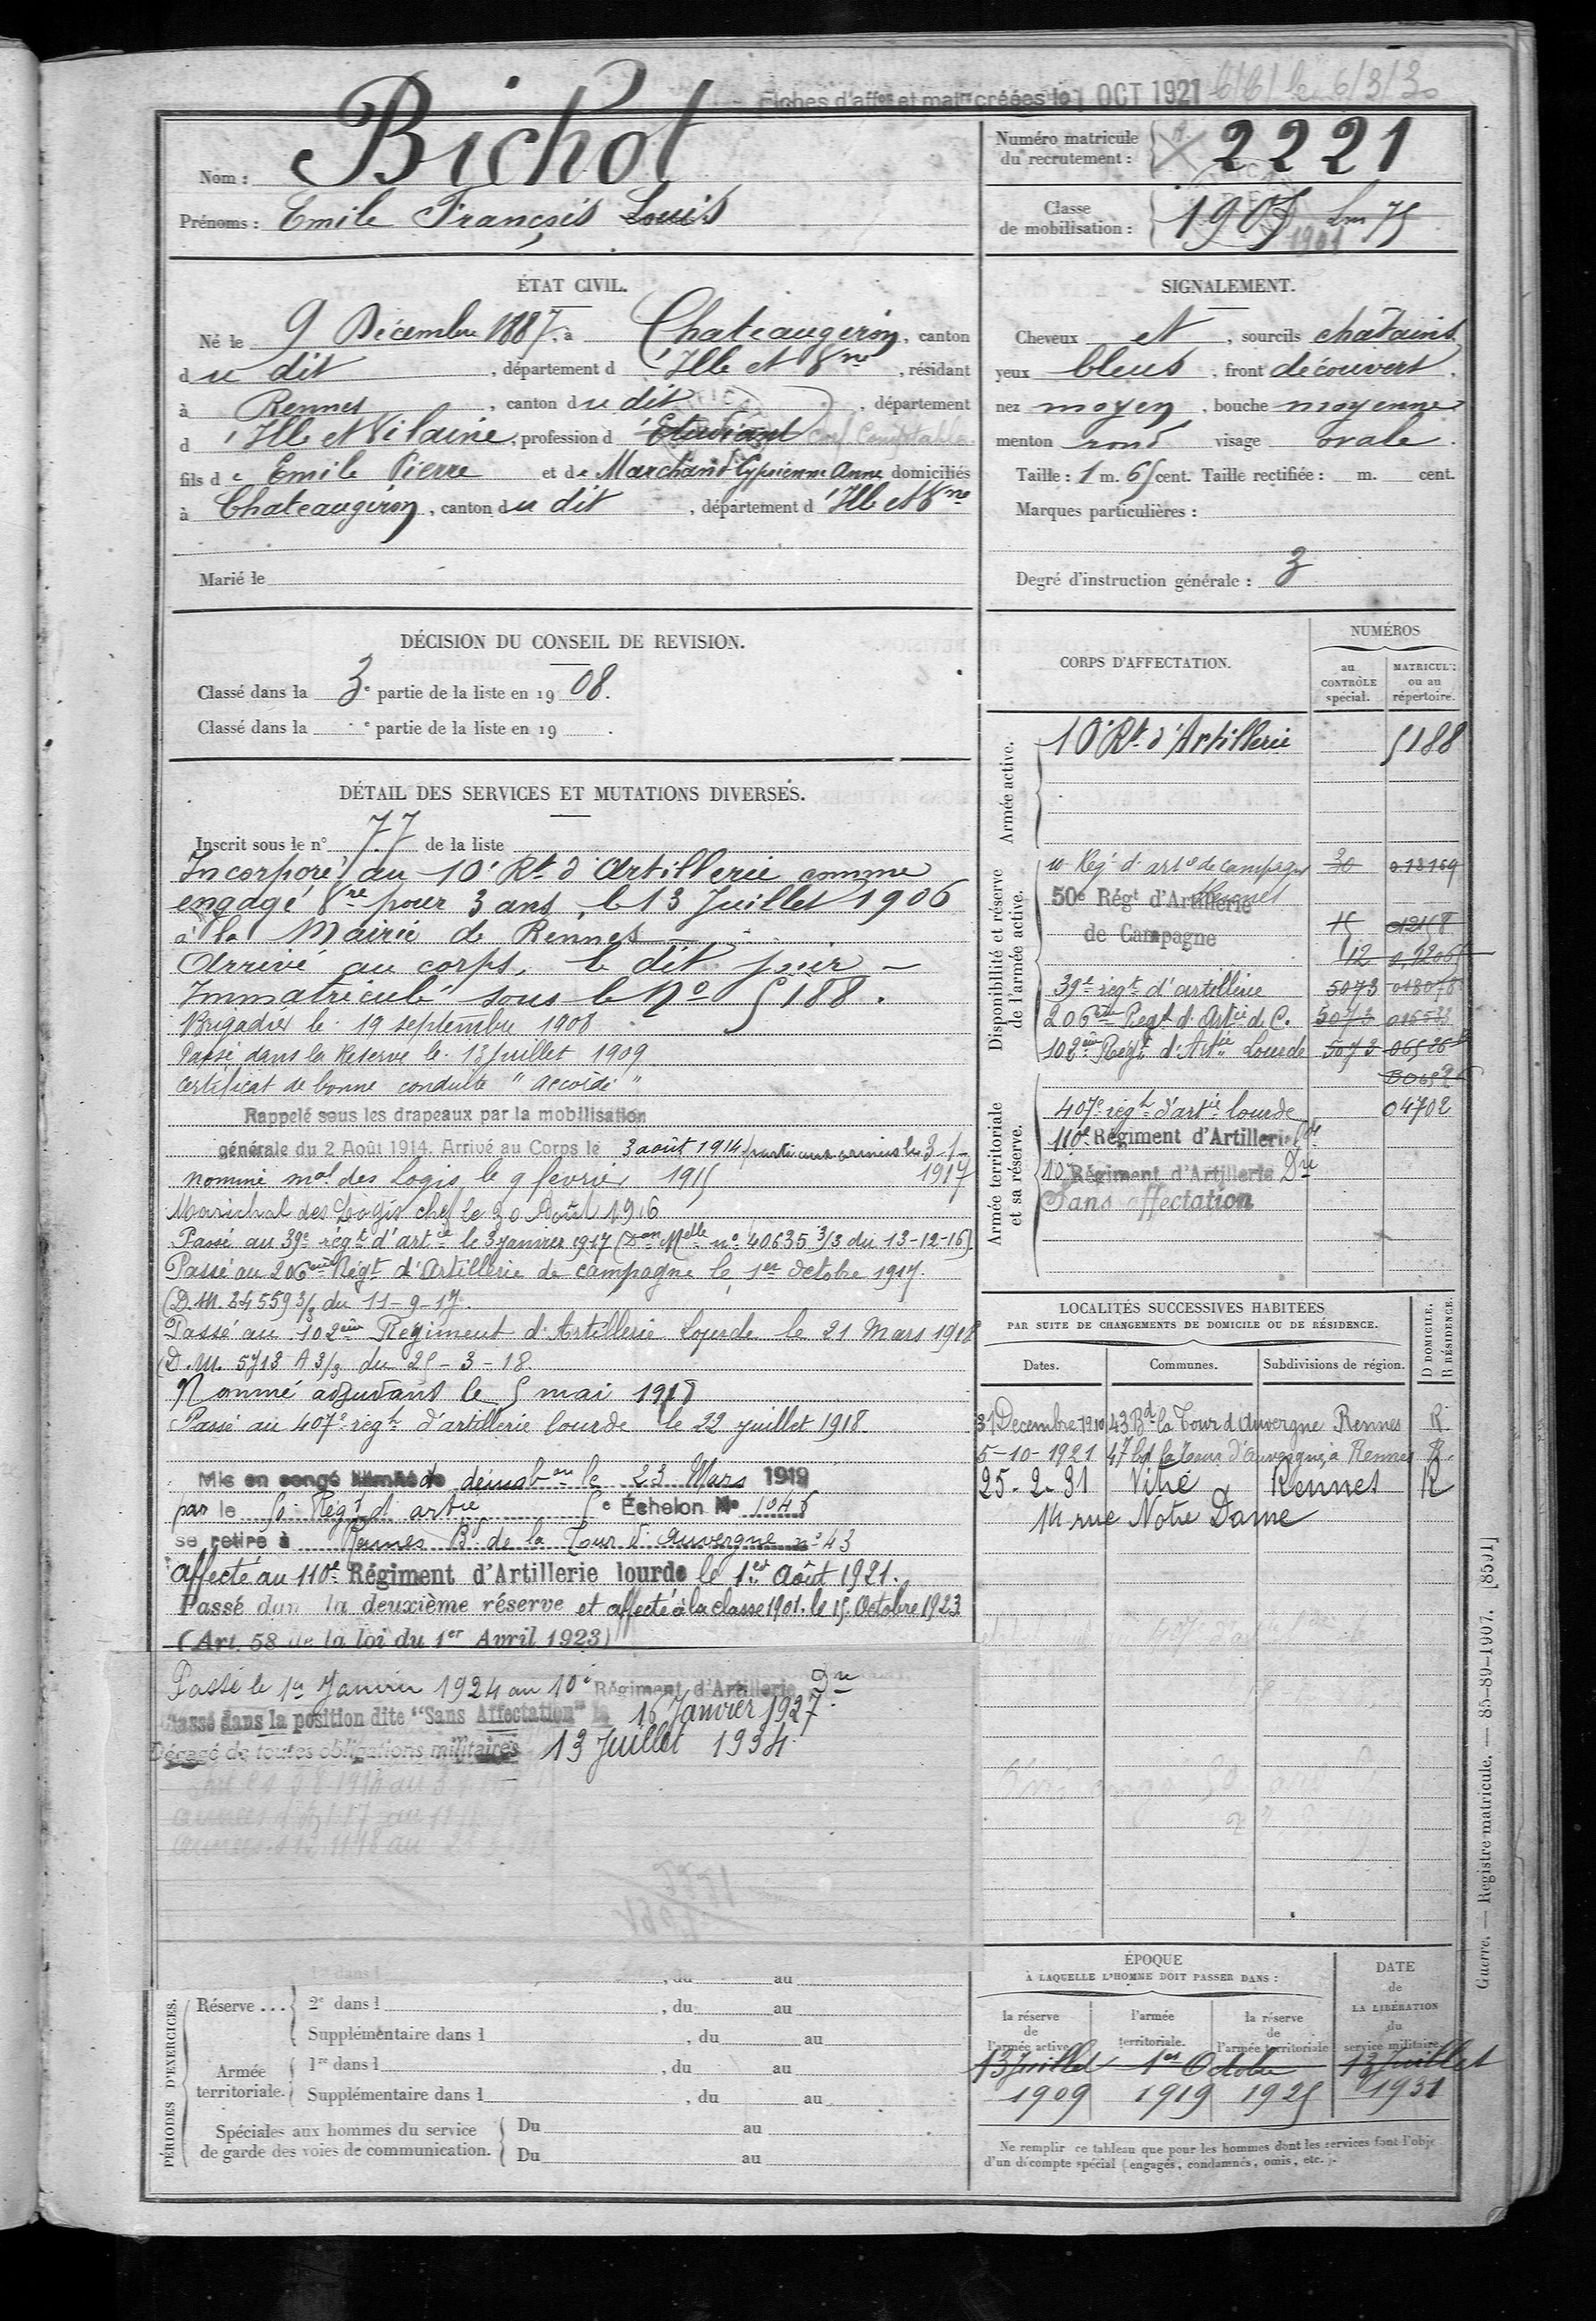 Fiches d'aff^on et mat^le créées le 1 OCT 1921
Nom : Bichot
Prénoms : Emile François Louis
Numéro matricule du recrutement : 2221
Classe de mobilisation : 1905
1901
ÉTAT CIVIL.
Né le 9 Décembre 1887, à Chateaugiron, canton
du dit, département d'Ille et Vne, résidant
à Rennes, canton du dit, département
d'Ille et Vilaine, profession d'Etudiant
fils de Emile Pierre et de Marchand Cyprienne Anne domiciliés
à Chateaugiron, canton du dit, département d'Ille et Vne
Marié le
SIGNALEMENT.
Cheveux et, sourcils chatains
yeux bleus, front découvert.
nez moyen, bouche moyenne
menton rond visage ovale.
Taille : 1 m. 65 cent. Taille rectifiée : m. cent.
Marques particulières :
Degré d'instruction générale : 3
DÉCISION DU CONSEIL DE REVISION.
Classé dans la 3e partie de la liste en 1908.
Classé dans la e partie de la liste en 19 .
DÉTAIL DES SERVICES ET MUTATIONS DIVERSES.
Inscrit sous le n° 77 de la liste
Incorporé au 10e Rt d'Artillerie comme
engagé Vre pour 3 ans, le 13 Juillet 1906
à la Mairie de Rennes
Arrivé au corps, le dit jour
Immatriculé sous le No 5188.
Brigadier le 19 septembre 1908
Passé dans la Réserve le 13 Juillet 1909
Certificat de bonne conduite "accordé"
Rappelé sous les drapeaux par la mobilisation
générale du 2 Août 1914. Arrivé au Corps le 3 août 1914 parti aux armées le 3-1-
1917
nommé mal des Logis le 9 février 1915
Maréchal des Logis chef le 30 Août 1916
Passé au 39e régt d'artie le 3 janvier 1917 (Don Melle no 40635 3/3 du 13-12-16).
Passé au 206eme Régt d'Artillerie de campagne le 1er Octobre 1917.
(D.M. 34559 3/3 du 11-9-17.
Passé au 102eme Régiment d'Artillerie Lourde le 21 Mars 1918
(D.M. 5713 A 3/3 du 25-3-18.
Nommé adjudant le 5 mai 1918
Passé au 407e régt d'artillerie lourde le 22 juillet 1918.
Mis en congé illimité de démobon le 23 Mars 1919
par le 50 Régt d'artie 5e Échelon No 1046
se retire à Rennes Bd de la Tour d'Auvergne no 43
affecté au 110e Régiment d'Artillerie lourde le 1er Août 1921.
Passé dans la deuxième réserve et affecté à la classe 1901. le 15 Octobre 1923
(Art. 58 de la loi du 1er Avril 1923)
Passé le 1er Janvier 1924 au 10e Régiment d'Artillerie Dre
Classé dans la position dite "Sans Affectation" le 16 Janvier 1927
Dégagé de toutes obligations militaires 13 Juillet 1934
CORPS D'AFFECTATION.
NUMÉROS
au CONTRÔLE spécial.
MATRICULE ou au répertoire.
Armée active.
10e Rt d'Artillerie 5188
Disponibilité et réserve de l'armée active.
10 Régt d'artie de campagne 30 013169
50e Régt d'Artillerie Rennes
de Campagne 15 01258
112 012065
39e régt d'artillerie 5073 018078
206eme Regt d'Artie de C. 5073 016533
102eme Regt d'Artie Lourde 5073 06526
Armée territoriale et sa réserve.
407e régt d'artie lourde 04702
110e Régiment d'Artillerie Lde
10e Régiment d'Artillerie Dre
Sans affectation
LOCALITÉS SUCCESSIVES HABITÉES
PAR SUITE DE CHANGEMENTS DE DOMICILE OU DE RÉSIDENCE.
Dates. Communes. Subdivisions de région. D DOMICILE. R RÉSIDENCE.
31 Decembre 1910 43 Bd la Tour d'Auvergne Rennes R
5-10-1921 47 Bd la Tour d'Auvergne, à Rennes R.
25-2-31 Vitré Rennes R
14 rue Notre Dame
PÉRIODES D'EXERCICES.
Réserve... 2e dans l , du au
Supplémentaire dans l , du au
Armée territoriale. 1re dans l , du au
Supplémentaire dans l , du au
Spéciales aux hommes du service de garde des voies de communication. Du au
Du au
ÉPOQUE
À LAQUELLE L'HOMME DOIT PASSER DANS :
la réserve de l'armée active
l'armée territoriale.
la réserve de l'armée territoriale
DATE de LA LIBÉRATION du service militaire.
13 Juillet 1er Octobre 13 Juillet
1909 1919 1925 1931
Ne remplir ce tableau que pour les hommes dont les services font l'objet
d'un décompte spécial (engagés, condamnés, omis, etc.).
Guerre. — Registre matricule. — 85-89-1907. [8591]